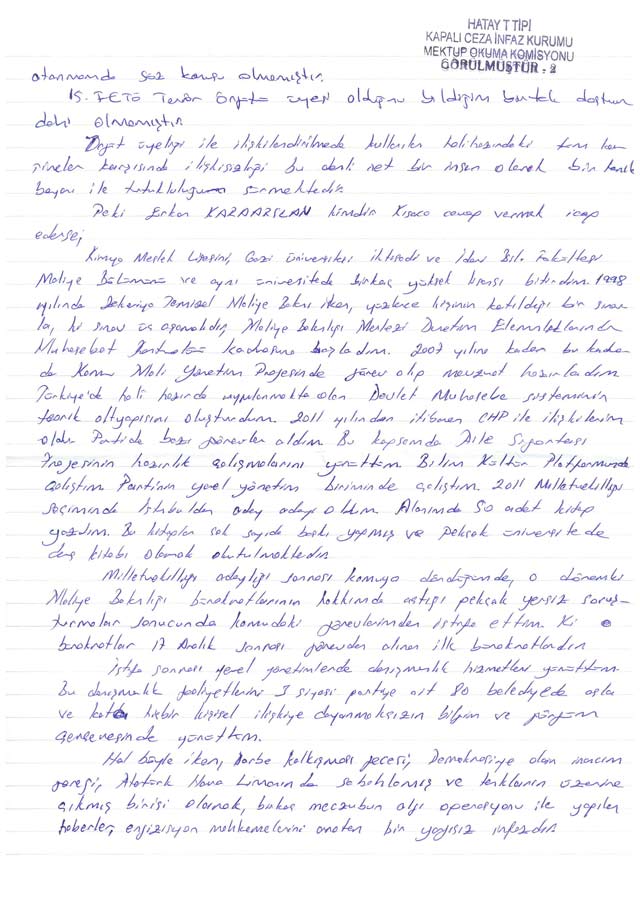 HATAY T TİPİ
KAPALI CEZA İNFAZ KURUMU
MEKTUP OKUMA KOMİSYONU
GÖRÜLMÜŞTÜR - 2
atanmamda söz konusu olmamıştır.
15. FETÖ Terör Örgütü üyesi olduğunu bildiğim bir tek dostum
dahi olmamıştır.
Örgüt üyeliği ile ilişkilendirilmede kullanılan halihazırdaki tüm
karşısında ilişkisizliği bu denli net bir insan olarak bir tanık
beyanı ile tutukluluğum sürmektedir.
Peki Erkan KARAARSLAN kimdir Kısaca cevap vermek icap
ederse;
Kimya Meslek Lisesini, Gazi Üniversitesi İktisadi ve İdari Bil. Fakültesi
Maliye Bölümünü ve aynı üniversitede birkaç yüksek lisansı bitirdim. 1998
yılında Zekeriya Temizel Maliye Bakanı iken, yüzlerce kişinin katıldığı bir sınav
la, ki sınav üç aşamalıdır, Maliye Bakanlığı Merkezi Denetim Elemanlıklarından
Muhasebat Kontrolörü kadrosuna başladım. 2007 yılına kadar bu kadro
da Kamu Mali Yönetim Projesinde görev alıp mevzuat hazırladım
Türkiye'de hali hazırda uygulanmakta olan Devlet Muhasebe sisteminin
teorik altyapısını oluşturdum. 2011 yılından itibaren CHP ile ilişkilerim
oldu Partide bazı görevler aldım Bu kapsamda Aile Sigortası
Projesinin hazırlık çalışmalarını yürüttüm. Bilim Kültür Platformunda
çalıştım Partinin yerel yönetim biriminde çalıştım. 2011 Milletvekilliği
Seçiminde İstanbuldan aday adayı oldum. Alanımda 50 adet kitap
yazdım. Bu kitaplar çok sayıda baskı yapmış ve pekçok üniversitede
ders kitabı olarak okutulmaktadır.
Milletvekilliği adaylığı sonrası kamuya döndüğümde, o dönemki
Maliye Bakanlığı bürokratlarının hakkımda açtığı pekçok yersiz soruş-
turmalar sonucunda kamudaki görevlerimden istifa ettim. Ki o
bürokratlar 17 Aralık sonrası görevden alınan ilk bürokratlardır
İstifa sonrası yerel yönetimlerde danışmanlık hizmetleri yürüttüm.
Bu danışmanlık faaliyetlerini 3 siyasi partiye ait 80 belediyede asla
ve kat'a hiçbir kişisel ilişkiye dayanmaksızın bilgim ve görgüm
çerçevesinde yürüttüm.
Hal böyle iken, Darbe kalkışması gecesi, Demokrasiye olan inancım
gereği, Atatürk Hava Limanında sabahlamış ve tankların üzerine
çıkmış birisi olarak, birkaç meczubun algı operasyonu ile yapılan
haberler, engizisyon mahkemelerini anatan bir yargısız infazdır.